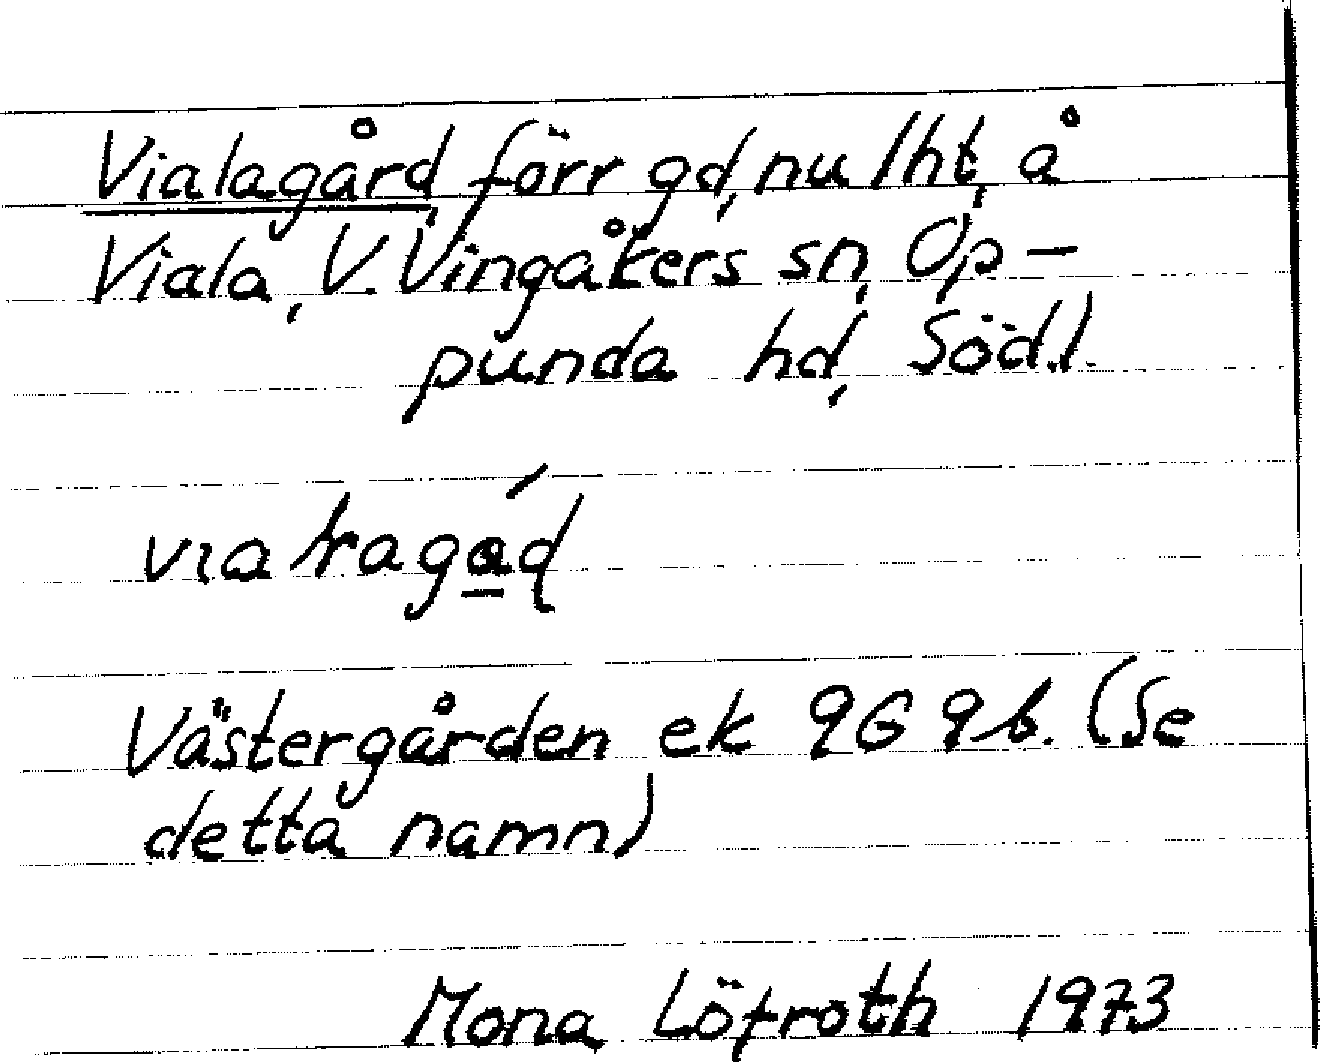 Vialagård, förr gd, nu lht, å
Viala, V. Vingåkers sn, Op-
punda hd, Söd.l.
Västergården ek 9G 9b. (Se
detta namn)
Mona Löfroth 1973